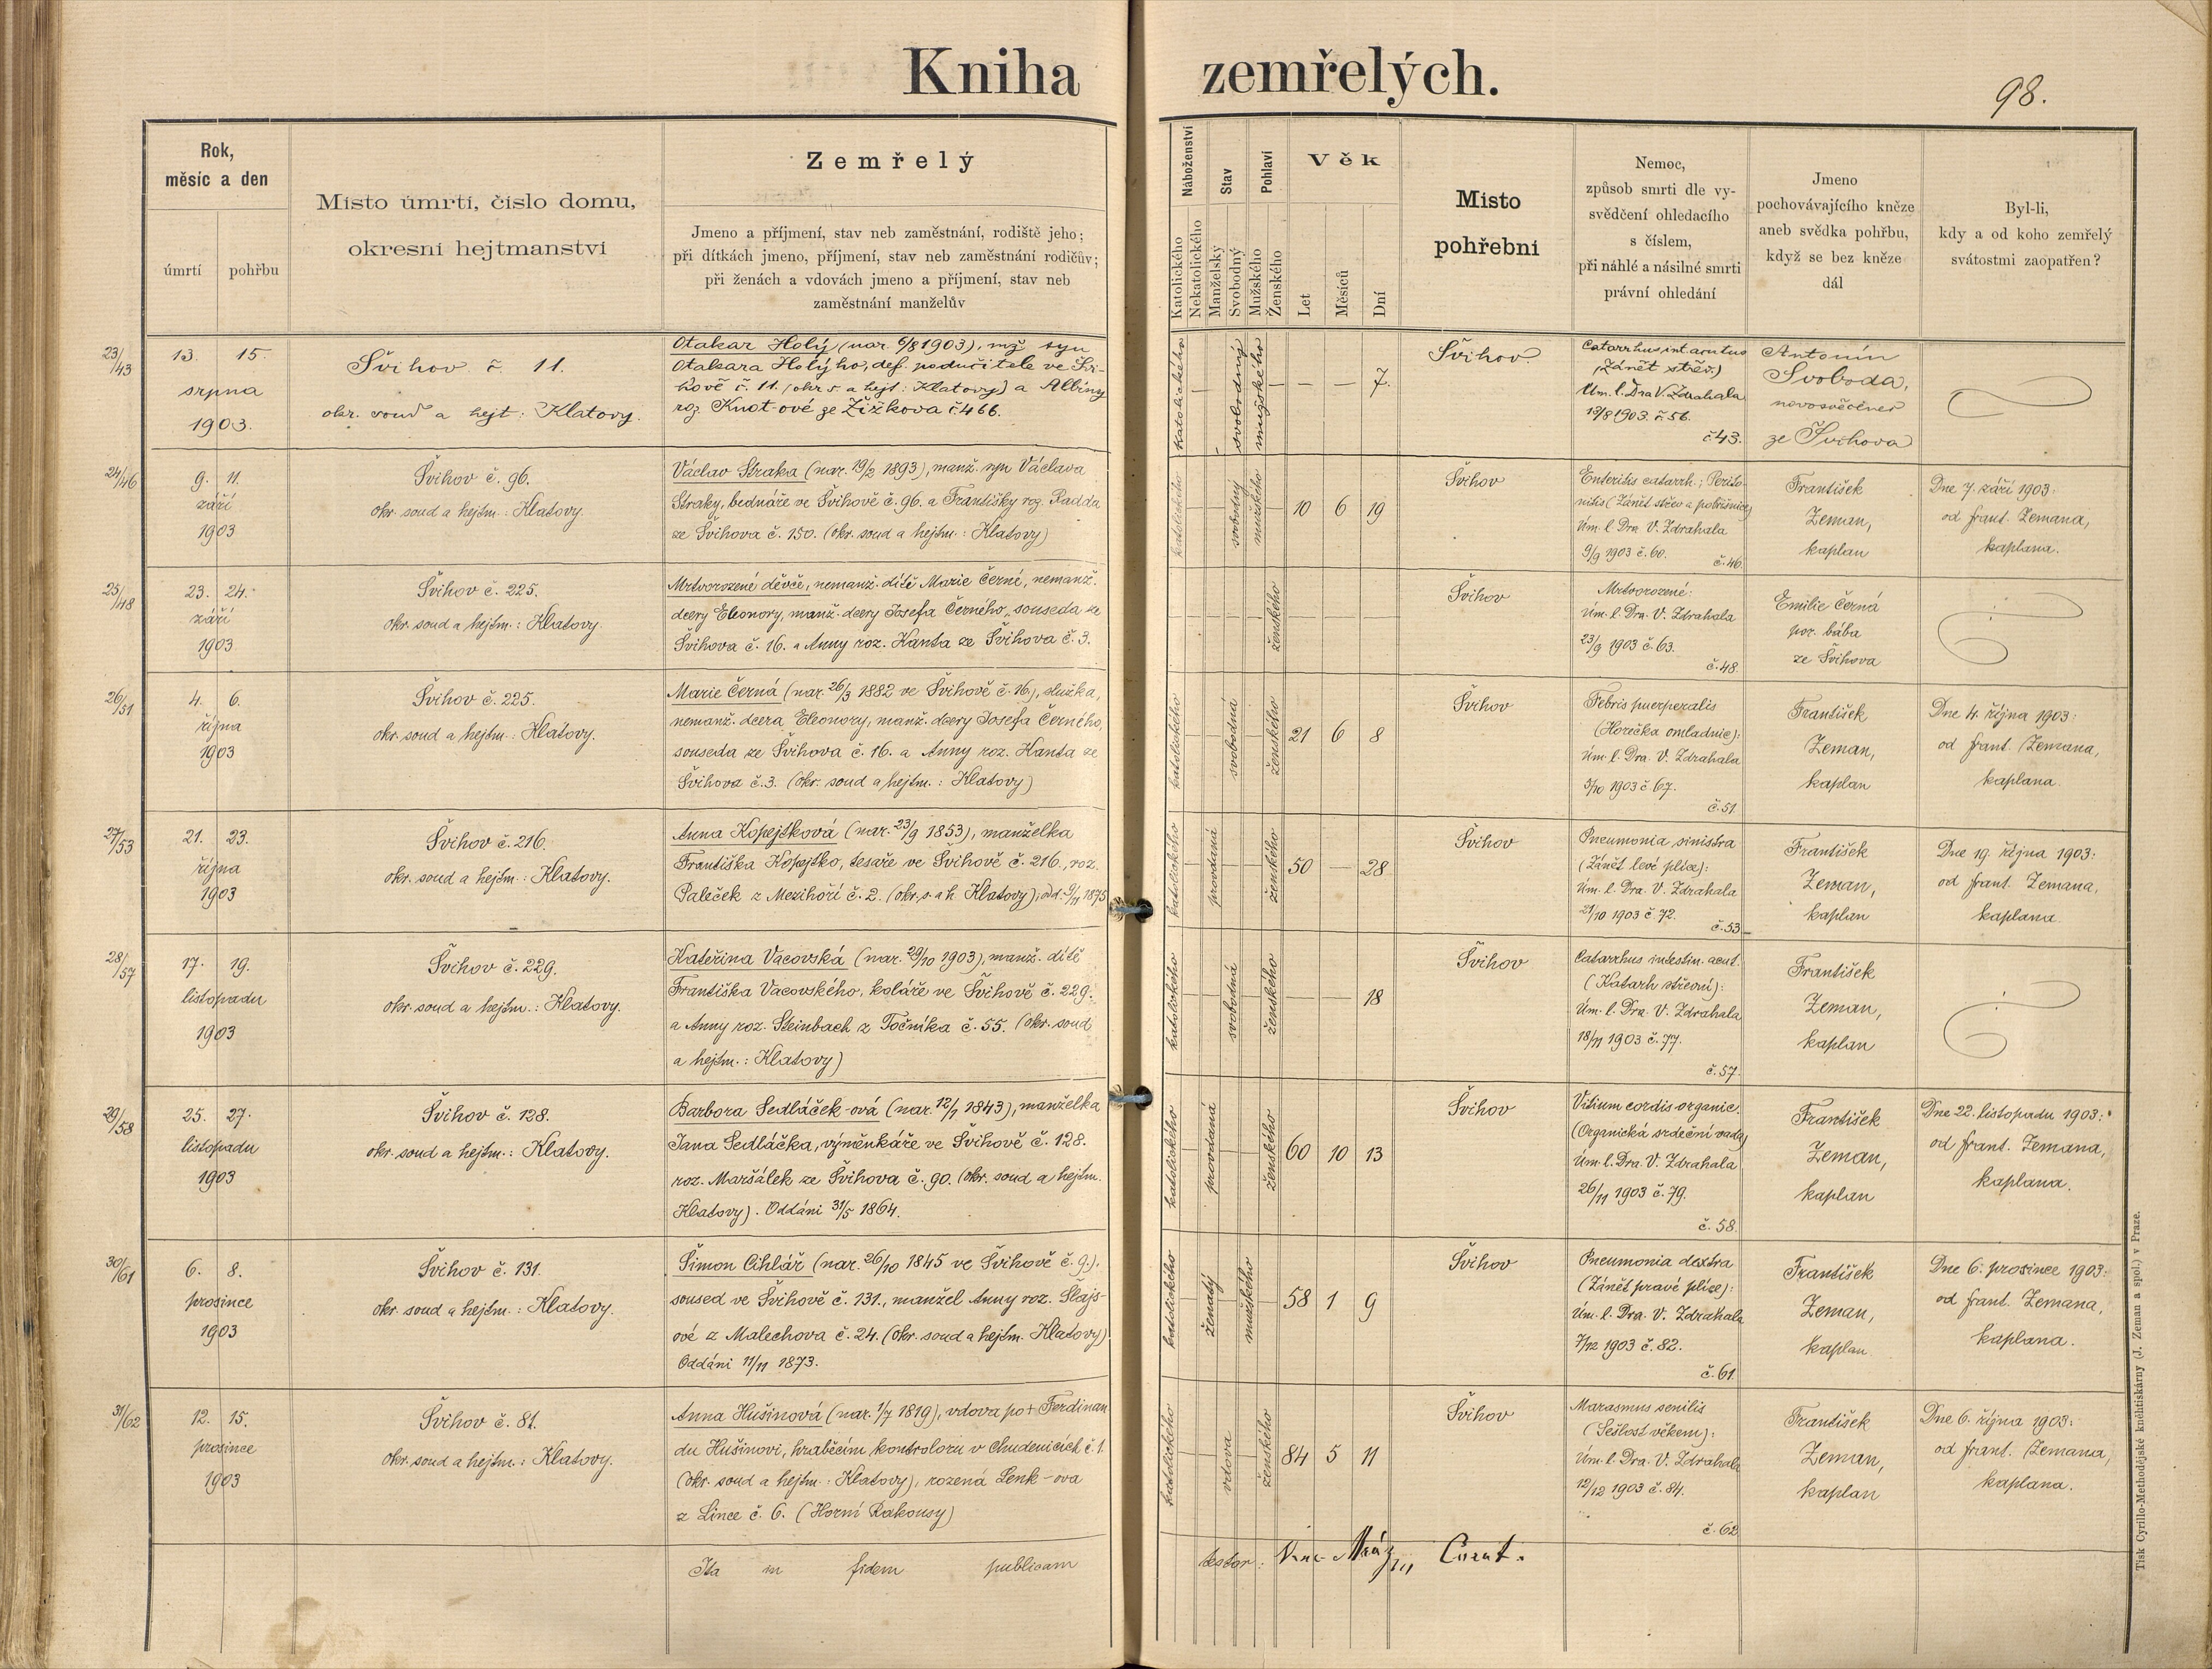 Kniha zemřelých.
98.
Rok,
měsíc a den
úmrtí pohřbu
Místo úmrtí, číslo domu,
okresní hejtmanství
Zemřelý
Jmeno a příjmení, stav neb zaměstnání, rodiště jeho;
při dítkách jmeno, příjmení, stav neb zaměstnání rodičův;
při ženách a vdovách jmeno a příjmení, stav neb
zaměstnání manželův
Náboženství
Katolického
Nekatolického
Stav
Manželský
Svobodný
Pohlaví
Mužského
Ženského
Věk
Let
Měsíců
Dní
Místo
pohřební
Nemoc,
způsob smrti dle vy-
svědčení ohledacího
s číslem,
při náhlé a násilné smrti
právní ohledání
Jmeno
pochovávajícího kněze
aneb svědka pohřbu,
když se bez kněze
dál
Byl-li,
kdy a od koho zemřelý
svátostmi zaopatřen?
23/43
13. 15.
srpna
1903.
Švihov č. 11.
okr. soud a hejt: Klatovy.
Otakar Holý (nar. 6/8 1903), mž syn
Otakara Holýho, def. podučitele ve Švi-
hově č. 11. (okr. s a hejt: Klatovy) a Albiny
roz. Knot-ové ze Žižkova č. 466.
katolického
svobodný
mužského
— — 7.
Švihov
Catarrhus int. acutus
(Zánět střev.)
Úm. l. Dra V. Zdrahala
13/8 1903. č. 56.
č. 43.
Antonín
Svoboda,
novosvěcenec
ze Švihova
24/46
9. 11.
září
1903
Švihov č. 96.
okr. soud a hejtm.: Klatovy.
Václav Straka (nar. 19/2 1893), manž. syn Václava
Straky, bednáře ve Švihově č. 96. a Františky roz. Radda
ze Švihova č. 150. (okr. soud a hejtm.: Klatovy)
katolického
svobodný
mužského
10 6 19
Švihov
Enteritis catarrh.; Perito-
nitis (Zánět střev a pobřišnice)
Úm. l. Dra. V. Zdrahala
9/9 1903 č. 60.
č. 46.
František
Zeman,
kaplan
Dne 7. září 1903:
od frant. Zemana,
kaplana.
25/48
23. 24.
září
1903
Švihov č. 225.
okr. soud a hejtm.: Klatovy.
Mrtvorozené děvče, nemanž. dítě Marie Černé, nemanž.
dcery Eleonory, manž. dcery Josefa Černého, souseda ze
Švihova č. 16. a Anny roz. Hanta ze Švihova č. 3.
ženského
Švihov
Mrtvorozené:
Úm. l. Dra. V. Zdrahala
23/9 1903 č. 63.
č. 48.
Emilie Černá
por. bába
ze Švihova
26/51
4. 6.
října
1903
Švihov č. 225.
okr. soud a hejtm.: Klatovy.
Marie Černá (nar. 26/3 1882 ve Švihově č. 16), služka,
nemanž. dcera Eleonory, manž. dcery Josefa Černého,
souseda ze Švihova č. 16. a Anny roz. Hanta ze
Švihova č. 3. (okr. soud a hejtm.: Klatovy)
katolického
svobodná
ženského
21 6 8
Švihov
Febris puerperalis
(Horečka omladnic):
Úm. l. Dra. V. Zdrahala
5/10 1903 č. 67.
č. 51.
František
Zeman,
kaplan
Dne 4. října 1903:
od frant. Zemana,
kaplana.
27/53
21. 23.
října
1903
Švihov č. 216.
okr. soud a hejtm.: Klatovy.
Anna Kopejtková (nar. 23/9 1853), manželka
Františka Kopejtko, tesaře ve Švihově č. 216., roz.
Paleček z Mezihoří č. 2. (okr. s. a h. Klatovy); odd. 9/11 1875
katolického
provdaná
ženského
50 — 28
Švihov
Pneumonia sinistra
(Zánět levé plíce):
Úm. l. Dra. V. Zdrahala
21/10 1903 č. 72.
č. 53
František
Zeman,
kaplan
Dne 19. října 1903:
od frant. Zemana,
kaplana.
28/57
17. 19.
listopadu
1903
Švihov č. 229.
okr. soud a hejtm.: Klatovy.
Kateřina Vacovská (nar. 29/10 1903), manž. dítě
Františka Vacovského, koláře ve Švihově č. 229.
a Anny roz. Steinbach z Točníka č. 55. (okr. soud
a hejtm.: Klatovy)
katolického
svobodná
ženského
— — 18
Švihov
Catarrhus intestin. acut.
(Katarh střevní):
Úm. l. Dra. V. Zdrahala
18/11 1903 č. 77.
č. 57.
František
Zeman,
kaplan
29/58
25. 27.
listopadu
1903
Švihov č. 128.
okr. soud a hejtm.: Klatovy.
Barbora Sedláček-ová (nar. 12/1 1843), manželka
Jana Sedláčka, výměnkáře ve Švihově č. 128.
roz. Maršálek ze Švihova č. 90. (okr. soud a hejtm.
Klatovy). Oddáni 31/5 1864.
katolického
provdaná
ženského
60 10 13
Švihov
Vitium cordis organic.
(Organická srdeční vada)
Úm. l. Dra. V. Zdrahala
26/11 1903 č. 79.
č. 58.
František
Zeman,
kaplan
Dne 22. listopadu 1903:
od frant. Zemana,
kaplana.
30/61
6. 8.
prosince
1903
Švihov č. 131.
okr. soud a hejtm.: Klatovy.
Šimon Cihlář (nar. 26/10 1845 ve Švihově č. 9.),
soused ve Švihově č. 131., manžel Anny roz. Šlajs-
ové z Malechova č. 24. (okr. soud a hejtm. Klatovy)
Oddáni 11/11 1873.
katolického
ženatý
mužského
58 1 9
Švihov
Pneumonia dextra
(Zánět pravé plíce):
Úm. l. Dra. V. Zdrahala
7/12 1903 č. 82.
č. 61.
František
Zeman,
kaplan
Dne 6. prosince 1903:
od frant. Zemana,
kaplana.
31/62
12. 15.
prosince
1903
Švihov č. 81.
okr. soud a hejtm.: Klatovy.
Anna Hušinová (nar. 1/7 1819), vdova po + Ferdinan
du Hušinovi, hraběcím kontroloru v Chudenicích č. 1.
(okr. soud a hejtm.: Klatovy), rozená Lenk-ova
z Lince č. 6. (Horní Rakousy)
katolického
vdova
ženského
84 5 11
Švihov
Marasmus senilis
(Sešlost věkem):
Úm. l. Dra. V. Zdrahala
12/12 1903 č. 84.
č. 62
František
Zeman,
kaplan
Dne 6. října 1903:
od frant. Zemana,
kaplana.
Ita in fidem publicam testor: Mráz
Tisk Cyrillo-Methodějské knihtiskárny (J. Zeman a spol.) v Praze.